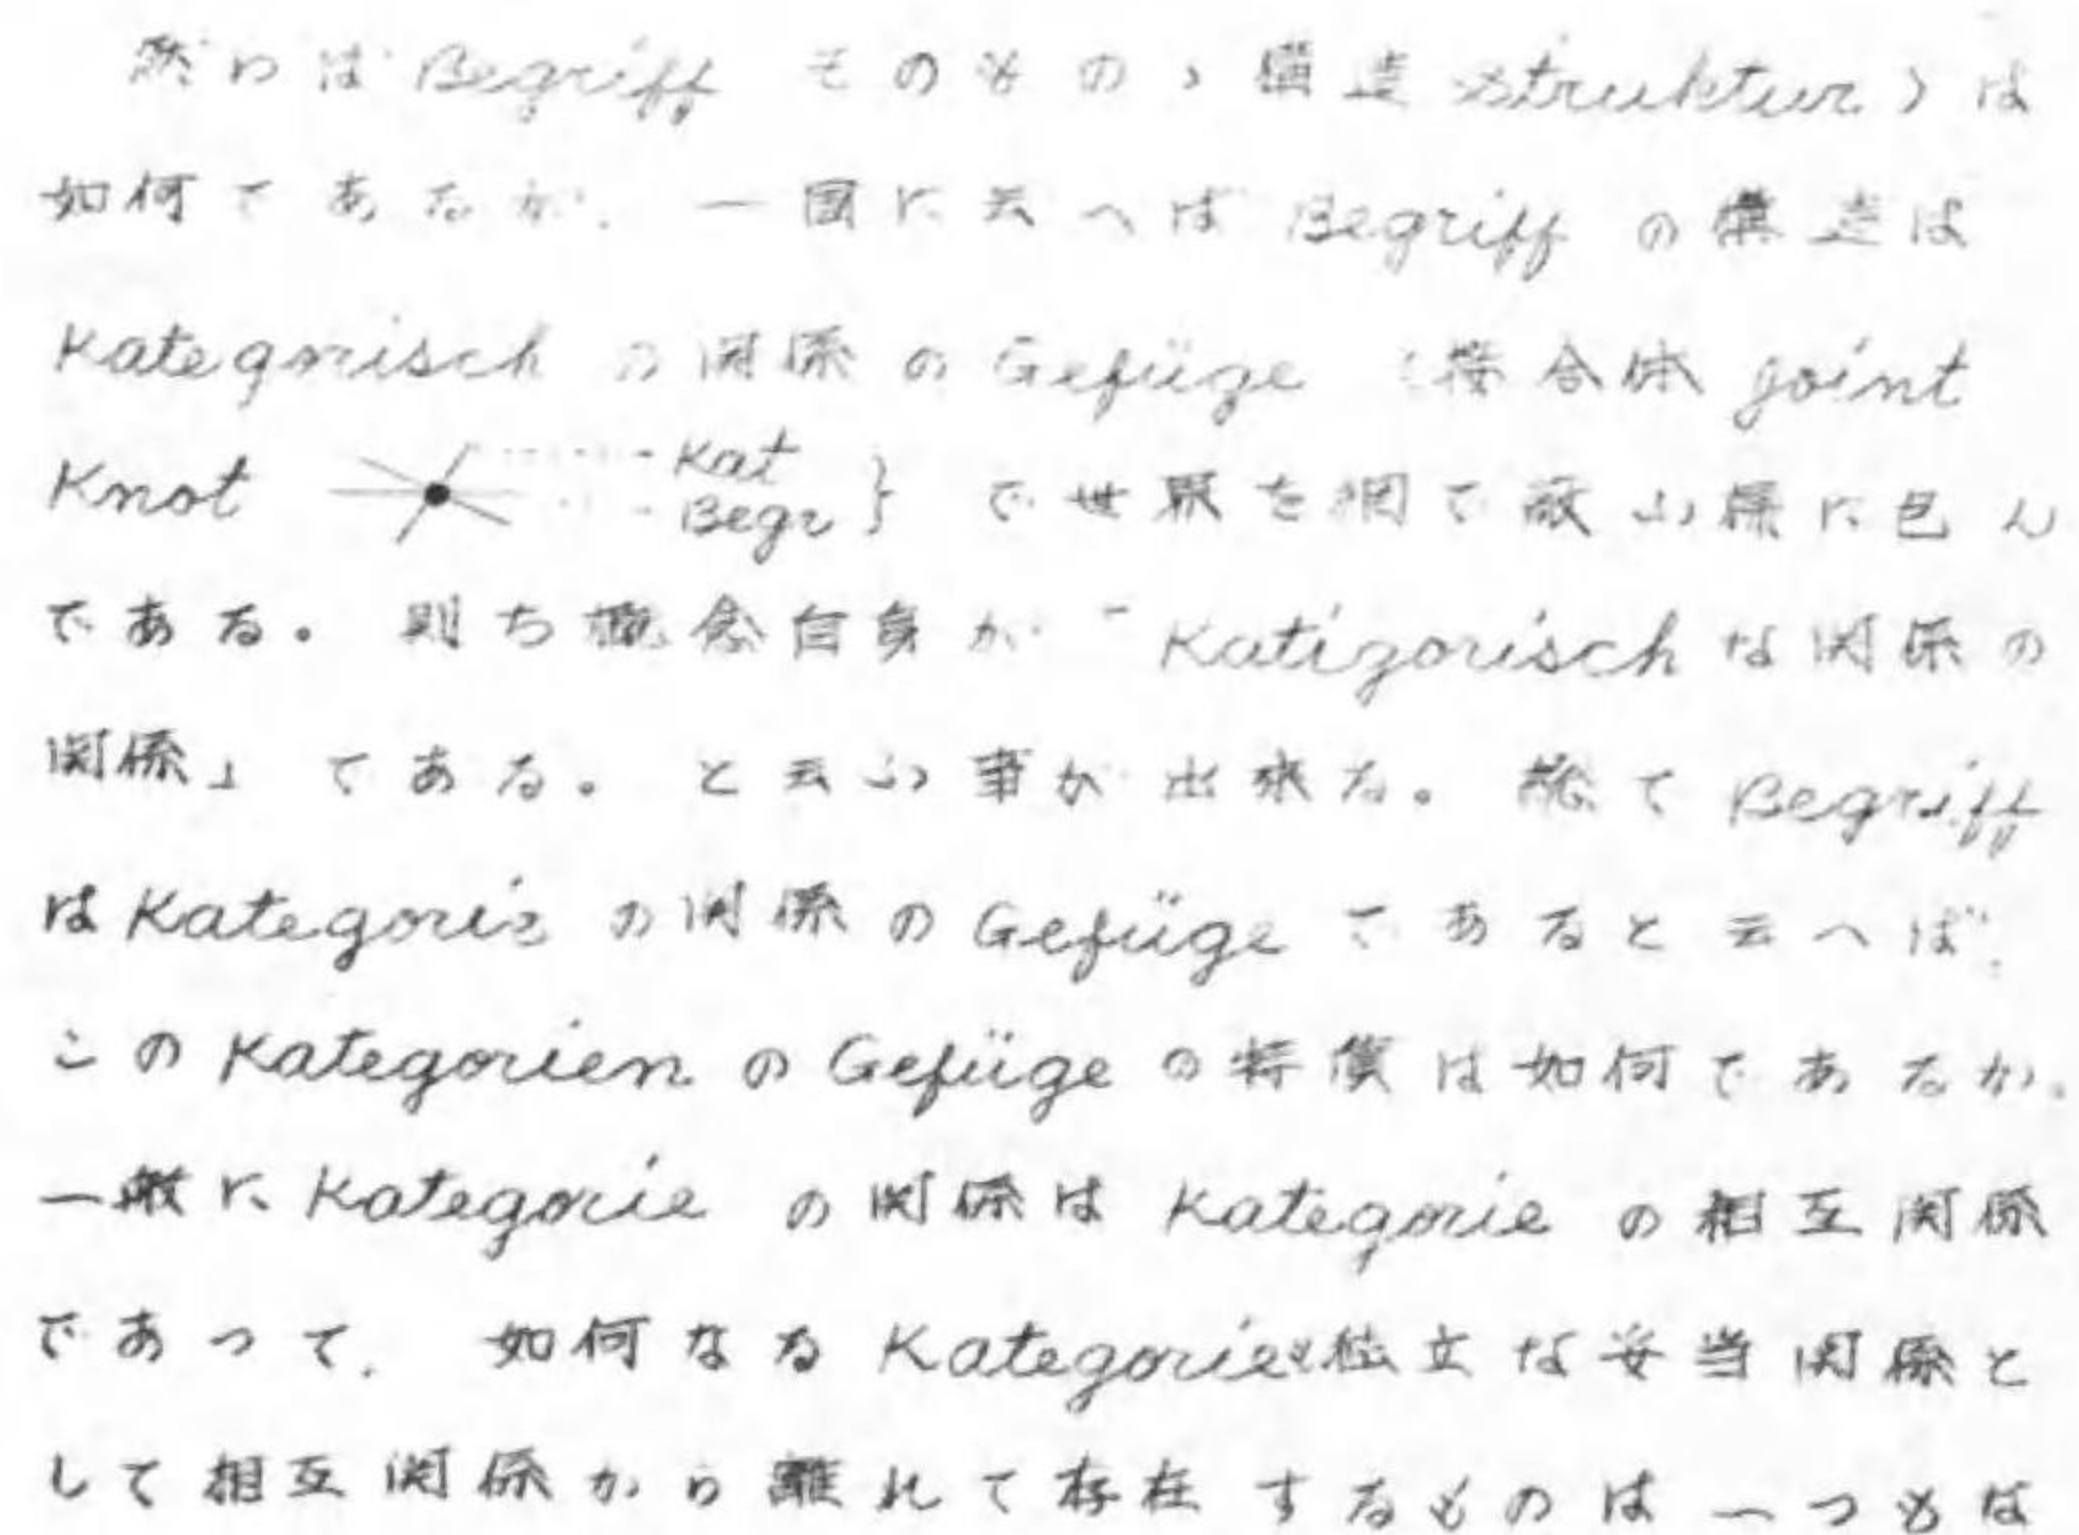 然らば Begriff そのもの、構造 Struktur）は
如何であるか. 一団に云へば Begriff の構造は
Kategorisch の関係の Gefüge （接合体 joint
Knot Kat Begr } で世界を網で蔽ふ様に包ん
である。則ち概念自身が「Katigorisch な関係の
関係」である。と云ふ事が出来る。総て Begriff
は Kategorie の関係の Gefüge であると云へば.
この Kategorien の Gefüge の特質は如何であるか.
一般に Kategorie の関係は Kategorie の相互関係
であつて. 如何なる Kategorie 独立な妥当関係と
して相互関係から離れて存在するものは一つもは